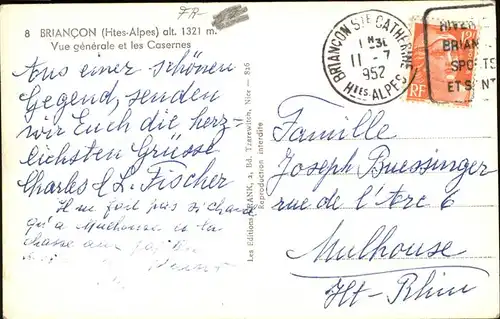 FR-
8 BRIANÇON (Htes-Alpes) alt. 1321 m.
Vue générale et les Casernes
Aus einer schönen
Gegend, senden
wir Euch die herz-
lichsten Grüsse
Charles & L. Fischer
Il ne fait pas si chaud
qu'à Mulhouse
chasse aux
Les Editions FRANK, 2, Bd. Tzarewitch, Nice - 826
Reproduction interdite
BRIANÇON STE CATHERINE
11 - 7
1952
HTES ALPES
HIVER
BRIAN
SPORTS
ET SANT
RF
Famille
Joseph Buessinger
rue de l'Arc 6
Mulhouse
Ht-Rhin